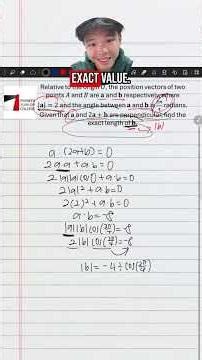 EXACT VALUE.
Relative to the origin O, the position vectors of two
points A and B are a and b respectively, where
|a| = 2 and the angle between a and b is radians.
Given that a and 2a + b are perpendicular, find the
exact length of b. → |b|
a · (2a+b) = 0
2a·a + a·b = 0
2|a||a| cos 0 + a·b = 0
2|a|² + a·b = 0
2(2)² + a·b = 0
a·b = -8
|a||b| cos( ) = -8
2|b| cos( ) = -8
|b| = -4 ÷ cos( )